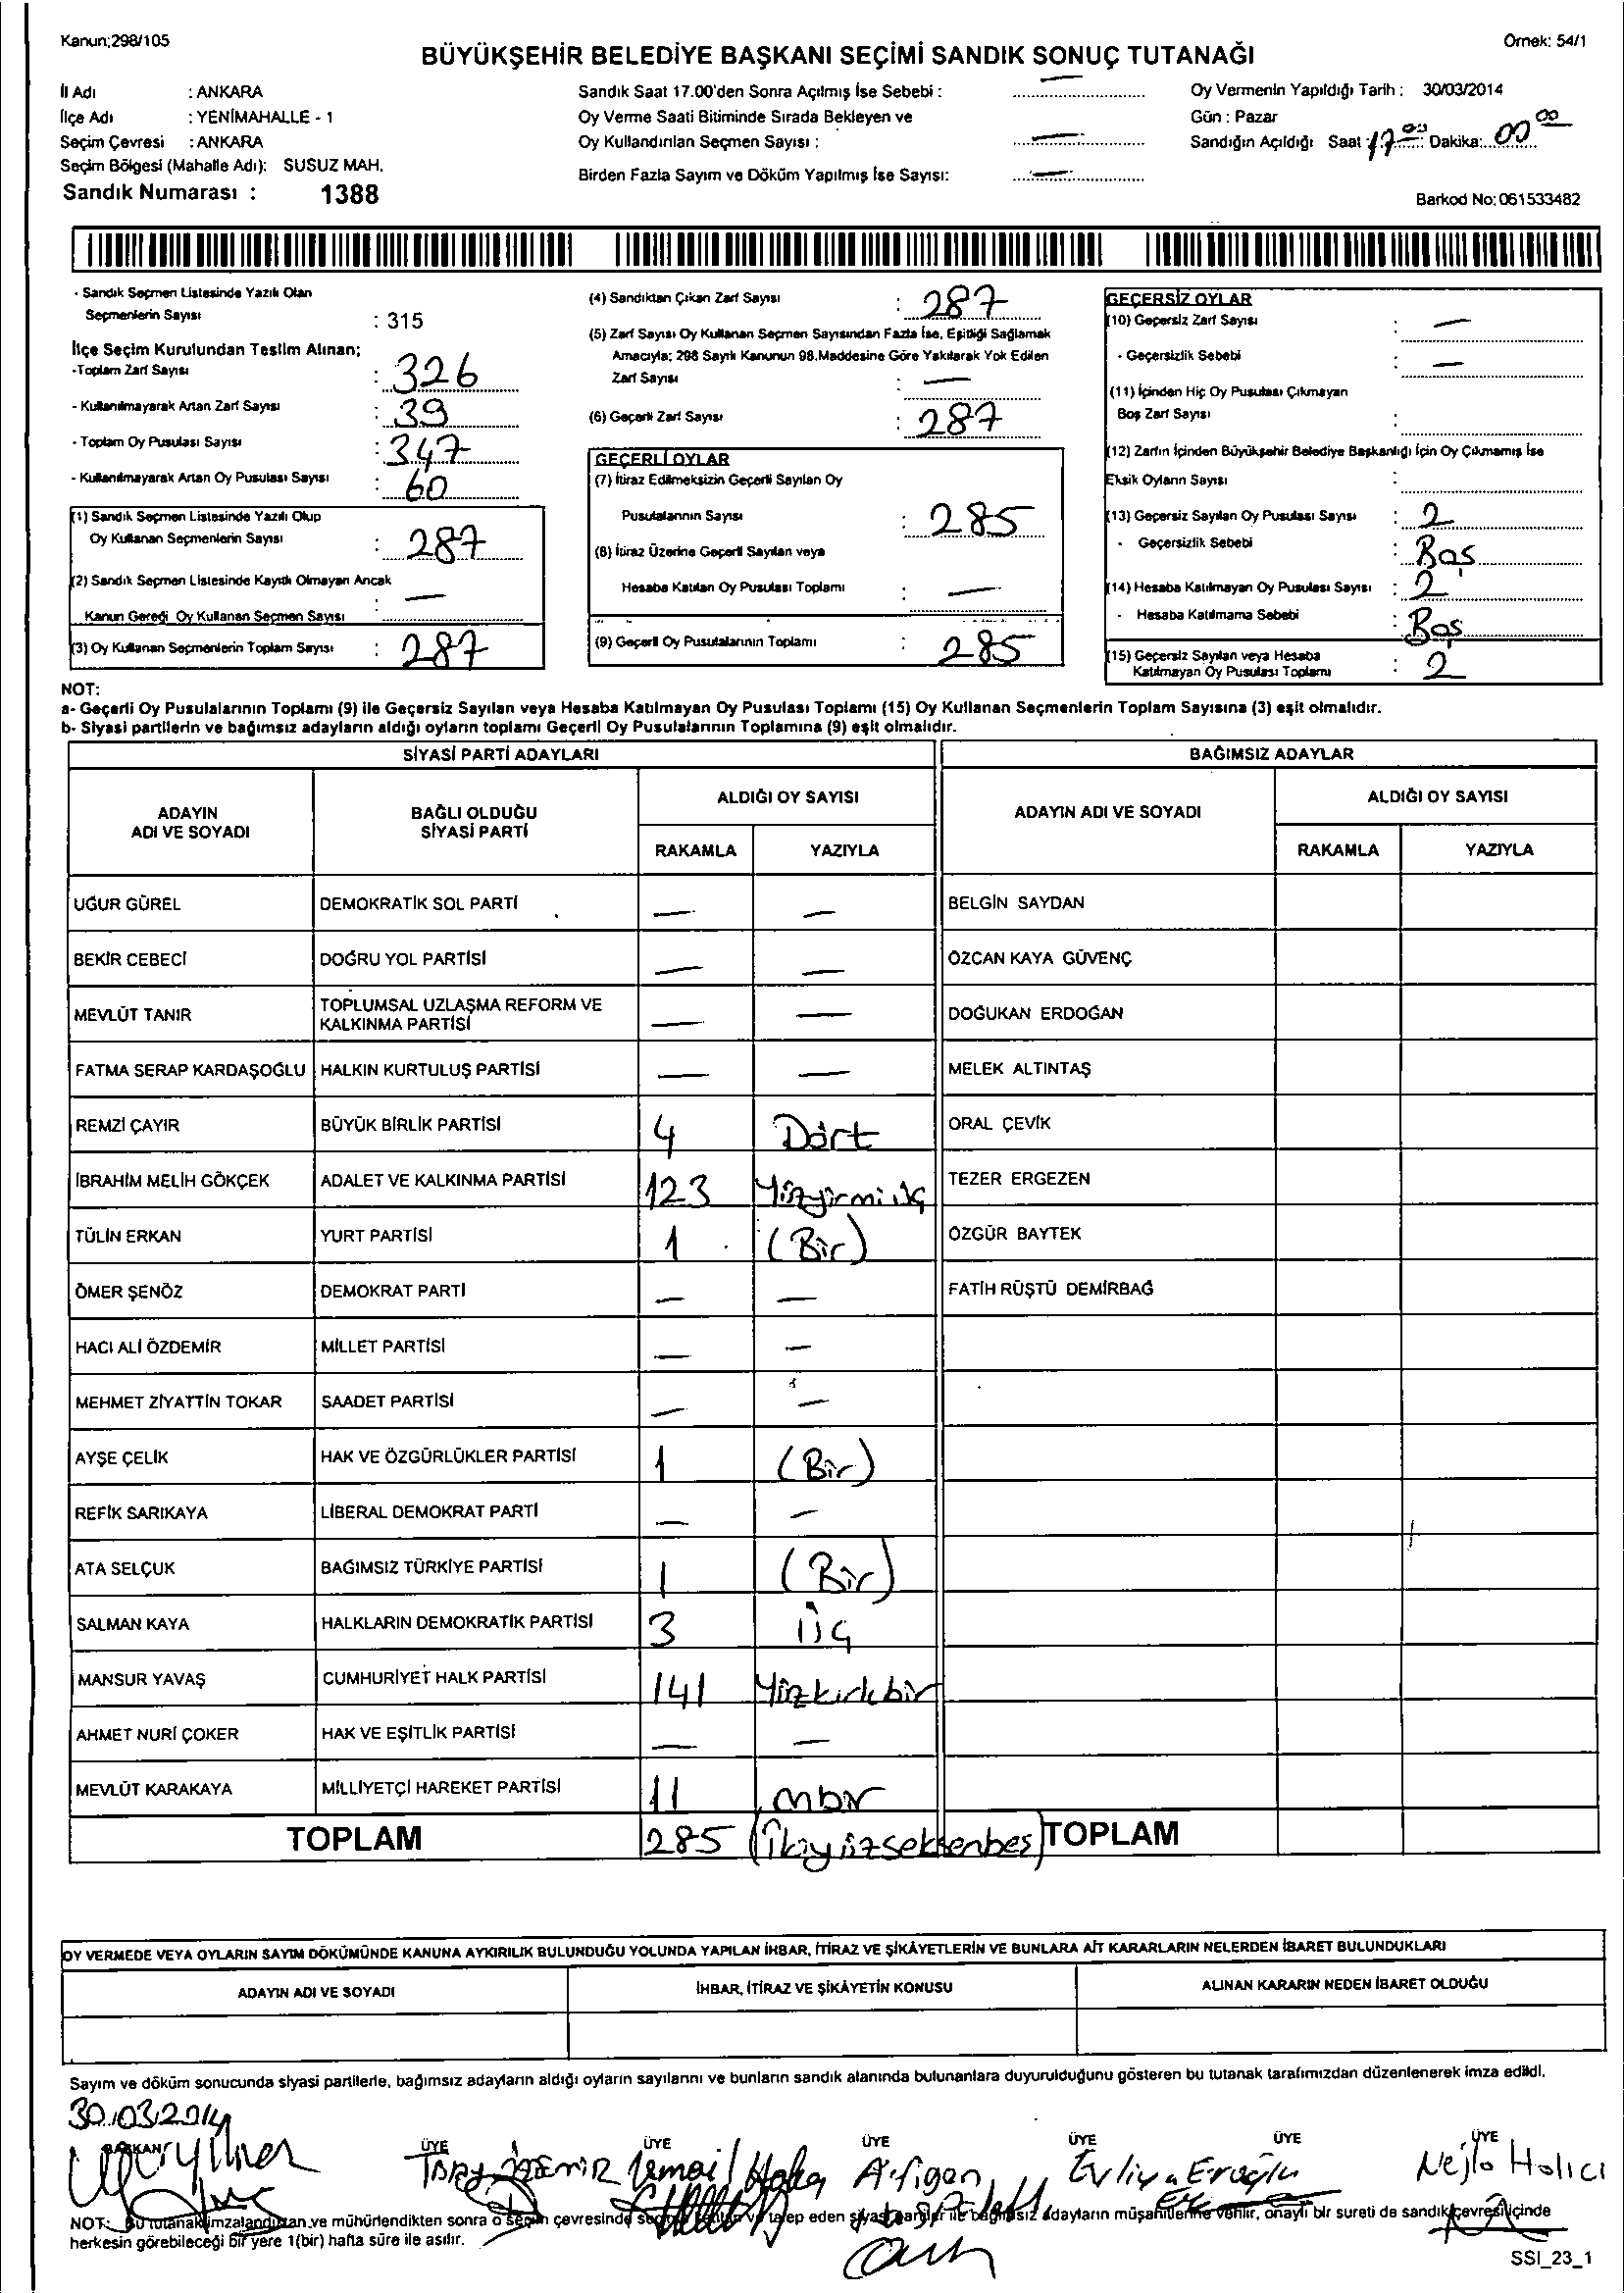 Kanun;298/105
Örnek: 54/1
BÜYÜKŞEHİR BELEDİYE BAŞKANI SEÇİMİ SANDIK SONUÇ TUTANAĞI
İl Adı : ANKARA
İlçe Adı : YENİMAHALLE - 1
Seçim Çevresi : ANKARA
Seçim Bölgesi (Mahalle Adı): SUSUZ MAH.
Sandık Numarası : 1388
Sandık Saat 17.00'den Sonra Açılmış İse Sebebi : —
Oy Verme Saati Bitiminde Sırada Bekleyen ve
Oy Kullandırılan Seçmen Sayısı : —
Birden Fazla Sayım ve Döküm Yapılmış İse Sayısı: —
Oy Vermenin Yapıldığı Tarih : 30/03/2014
Gün : Pazar
Sandığın Açıldığı Saat : 17 00 Dakika: 00 00
Barkod No: 061533482
- Sandık Seçmen Listesinde Yazılı Olan
Seçmenlerin Sayısı : 315
İlçe Seçim Kurulundan Teslim Alınan;
-Toplam Zarf Sayısı : 326
- Kullanılmayarak Artan Zarf Sayısı : 39
- Toplam Oy Pusulası Sayısı : 347
- Kullanılmayarak Artan Oy Pusulası Sayısı : 60
(1) Sandık Seçmen Listesinde Yazılı Olup
Oy Kullanan Seçmenlerin Sayısı : 287
(2) Sandık Seçmen Listesinde Kayıtlı Olmayan Ancak
Kanun Gereği Oy Kullanan Seçmen Sayısı : —
(3) Oy Kullanan Seçmenlerin Toplam Sayısı : 287
(4) Sandıktan Çıkan Zarf Sayısı : 287
(5) Zarf Sayısı Oy Kullanan Seçmen Sayısından Fazla İse, Eşitliği Sağlamak
Amacıyla; 298 Sayılı Kanunun 98.Maddesine Göre Yakılarak Yok Edilen
Zarf Sayısı : —
(6) Geçerli Zarf Sayısı : 287
GEÇERLİ OYLAR
(7) İtiraz Edilmeksizin Geçerli Sayılan Oy
Pusulalarının Sayısı : 285
(8) İtiraz Üzerine Geçerli Sayılan veya
Hesaba Katılan Oy Pusulası Toplamı : —
(9) Geçerli Oy Pusulalarının Toplamı : 285
GEÇERSİZ OYLAR
(10) Geçersiz Zarf Sayısı : —
- Geçersizlik Sebebi : —
(11) İçinden Hiç Oy Pusulası Çıkmayan
Boş Zarf Sayısı :
(12) Zarfın İçinden Büyükşehir Belediye Başkanlığı İçin Oy Çıkmamış İse
Eksik Oyların Sayısı :
(13) Geçersiz Sayılan Oy Pusulası Sayısı : 2
- Geçersizlik Sebebi : Boş
(14) Hesaba Katılmayan Oy Pusulası Sayısı : 2
- Hesaba Katılmama Sebebi : Boş
(15) Geçersiz Sayılan veya Hesaba
Katılmayan Oy Pusulası Toplamı : 2
NOT:
a- Geçerli Oy Pusulalarının Toplamı (9) ile Geçersiz Sayılan veya Hesaba Katılmayan Oy Pusulası Toplamı (15) Oy Kullanan Seçmenlerin Toplam Sayısına (3) eşit olmalıdır.
b- Siyasi partilerin ve bağımsız adayların aldığı oyların toplamı Geçerli Oy Pusulalarının Toplamına (9) eşit olmalıdır.
SİYASİ PARTİ ADAYLARI BAĞIMSIZ ADAYLAR
ADAYIN ADI VE SOYADI BAĞLI OLDUĞU SİYASİ PARTİ ALDIĞI OY SAYISI ADAYIN ADI VE SOYADI ALDIĞI OY SAYISI
RAKAMLA YAZIYLA RAKAMLA YAZIYLA
UĞUR GÜREL DEMOKRATİK SOL PARTİ — — BELGİN SAYDAN
BEKİR CEBECİ DOĞRU YOL PARTİSİ — — ÖZCAN KAYA GÜVENÇ
MEVLÜT TANIR TOPLUMSAL UZLAŞMA REFORM VE KALKINMA PARTİSİ — — DOĞUKAN ERDOĞAN
FATMA SERAP KARDAŞOĞLU HALKIN KURTULUŞ PARTİSİ — — MELEK ALTINTAŞ
REMZİ ÇAYIR BÜYÜK BİRLİK PARTİSİ 4 Dört ORAL ÇEVİK
İBRAHİM MELİH GÖKÇEK ADALET VE KALKINMA PARTİSİ 123 Yüzyirmi üç TEZER ERGEZEN
TÜLİN ERKAN YURT PARTİSİ 1 (Bir) ÖZGÜR BAYTEK
ÖMER ŞENÖZ DEMOKRAT PARTİ — — FATİH RÜŞTÜ DEMİRBAĞ
HACI ALİ ÖZDEMİR MİLLET PARTİSİ — —
MEHMET ZİYATTİN TOKAR SAADET PARTİSİ — —
AYŞE ÇELİK HAK VE ÖZGÜRLÜKLER PARTİSİ 1 (Bir)
REFİK SARIKAYA LİBERAL DEMOKRAT PARTİ — —
ATA SELÇUK BAĞIMSIZ TÜRKİYE PARTİSİ 1 (Bir)
SALMAN KAYA HALKLARIN DEMOKRATİK PARTİSİ 3 üç
MANSUR YAVAŞ CUMHURİYET HALK PARTİSİ 141 Yüzkırkbir
AHMET NURİ ÇOKER HAK VE EŞİTLİK PARTİSİ — —
MEVLÜT KARAKAYA MİLLİYETÇİ HAREKET PARTİSİ 11 onbir
TOPLAM 285 (İkiyüzseksenbeş) TOPLAM
OY VERMEDE VEYA OYLARIN SAYIM DÖKÜMÜNDE KANUNA AYKIRILIK BULUNDUĞU YOLUNDA YAPILAN İHBAR, İTİRAZ VE ŞİKÂYETLERİN VE BUNLARA AİT KARARLARIN NELERDEN İBARET BULUNDUKLARI
ADAYIN ADI VE SOYADI İHBAR, İTİRAZ VE ŞİKÂYETİN KONUSU ALINAN KARARIN NEDEN İBARET OLDUĞU
Sayım ve döküm sonucunda siyasi partilerle, bağımsız adayların aldığı oyların sayılarını ve bunların sandık alanında bulunanlara duyurulduğunu gösteren bu tutanak tarafımızdan düzenlenerek imza edildi.
30.03.2014
BAŞKAN ÜYE ÜYE ÜYE ÜYE ÜYE ÜYE
Evliya Eroğlu Nejla Holıcı
NOT: Bu tutanak imzalandıktan ve mühürlendikten sonra o seçim çevresinde talep eden siyasi partiler ile bağımsız adayların müşahitlerine verilir, onaylı bir sureti de sandık çevresi içinde
herkesin görebileceği bir yere 1(bir) hafta süre ile asılır.
SSI_23_1